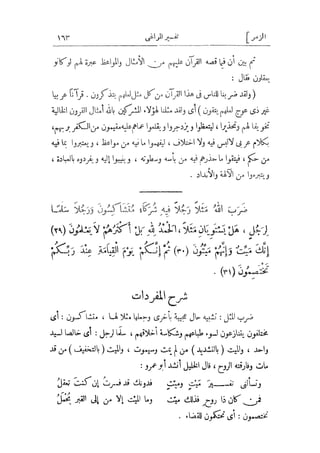 الزمر ]
تفسير المراغي
١٦٣
ثم بين أن فيما قصه القرآن عليهم من الأمثال والمواعظ عبرة لهم لو كانوا
يعقلون فقال :
( ولقد ضربنا للناس فى هذا القرآن من كل مثل لعلهم يتذكرون . قرآنا عربيا
غير ذى عوج لعلهم يتقون ) أى ولقد مثلنا لهؤلاء المشركين بالله أمثال القرون الخالية
تخويفا لهم وتحذيرا ، ليتعظوا ويزدجروا ويقلعوا عما هم عليه مقيمون من الكفر بربهم ،
بكلام عربى لا لبس فيه ولا اختلاف ، ليفهموا ما فيه من مواعظ ، ويعتبروا بما فيه
من حكم ، فيتقوا ما حذرهم فيه من بأسه وسطوته ، وينيبوا إليه ويفردوه بالعبادة ،
ويتبرءوا من الآلهة والأنداد .
ضَرَبَ اللهُ مَثَلًا رَجُلًا فِيهِ شُرَكَاءُ مُتَشَاكِسُونَ وَرَجُلًا سَلَمًا
لِرَجُلٍ ، هَلْ يَسْتَوِيَانِ مَثَلًا ، الْحَمْدُ لِلهِ بَلْ أَكْثَرُهُمْ لَا يَعْلَمُونَ (٢٩)
إِنَّكَ مَيِّتٌ وَإِنَّهُمْ مَيِّتُونَ (٣٠) ثُمَّ إِنَّكُمْ يَوْمَ الْقِيَامَةِ عِنْدَ رَبِّكُمْ
تَخْتَصِمُونَ (٣١) .
شرح المفردات
ضرب المثل : تشبيه حال عجيبة بأخرى وجعلها مثلا لها ، متشاكسون : أى
مختلفون يتنازعون لسوء طباعهم وشكاسة أخلاقهم ، سلما لرجل : أى خالصا لسيد
واحد ، والميّت ( بالتشديد ) من لم يمت وسيموت ، والميت ( بالتخفيف ) من قد
مات وفارقته الروح ، قال الخليل أنشد أبو عمرو :
وتسألنى تفسير مَيْتٍ وميِّتٍ فدونك قد فسرتُ إن كنت تعقلُ
فمن كان ذا روح فذلك ميّت وما الميْت إلا من إلى القبر يُحْمَلُ
تختصمون : أى تحتكمون للقضاء .